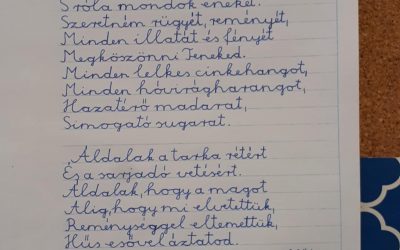 S róla mondok éneket.
Szeretném rügyét, reményét,
Minden illatát és fényét
Megköszönni Teneked.
Minden lelkes cinkehangot,
Minden hóvirágharangot,
Hazatérő madarat,
Simogató sugarat.
Áldalak a tarka rétért
És a sarjadó vetésért.
Áldalak, hogy a magot
Alig, hogy mi elvetettük,
Reménységgel eltemettük,
Hűs esővel áztatod.